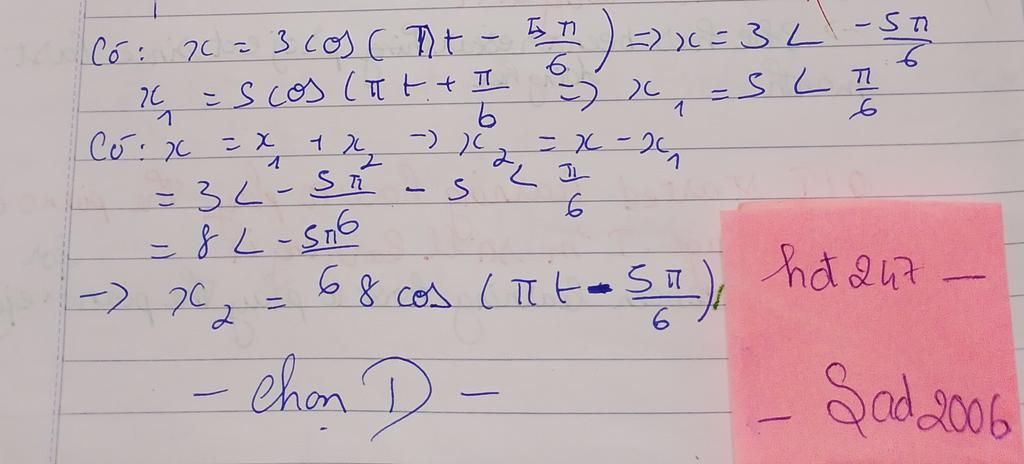 Có: x = 3 cos (πt - 5π/6) => x = 3 ∠ -5π/6
x₁ = 5 cos (πt + π/6 => x₁ = 5 ∠ π/6
Có: x = x₁ + x₂ -> x₂ = x - x₁
= 3 ∠ -5π/6 - 5 ∠ π/6
= 8 ∠ -5π/6
-> x₂ = 8 cos (πt - 5π/6)
- Chọn D -
hdt247 -
- Sad2006